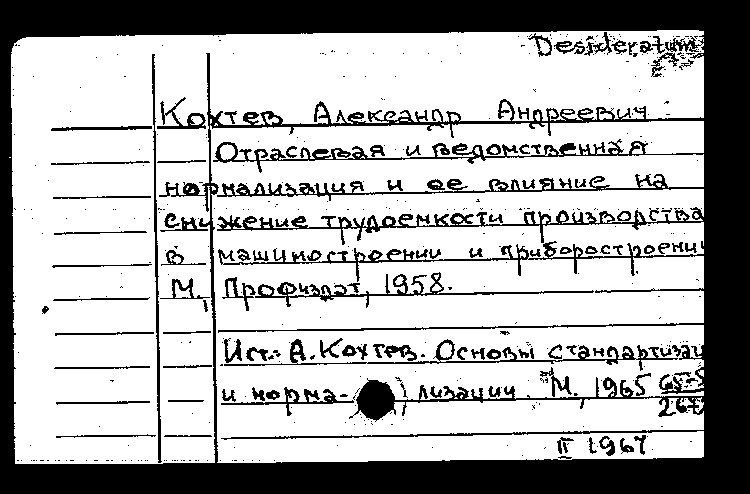 Desideratum
Кохтев, Александр Андреевич
Отраслевая и ведомственная
нормализация и ее влияние на
снижение трудоемкости производства
в машиностроении и приборостроении
М., Профиздат, 1958.
Ист.: А. Кохтев. Основы стандартизац
и норма- лизации. М., 1965
II 1967